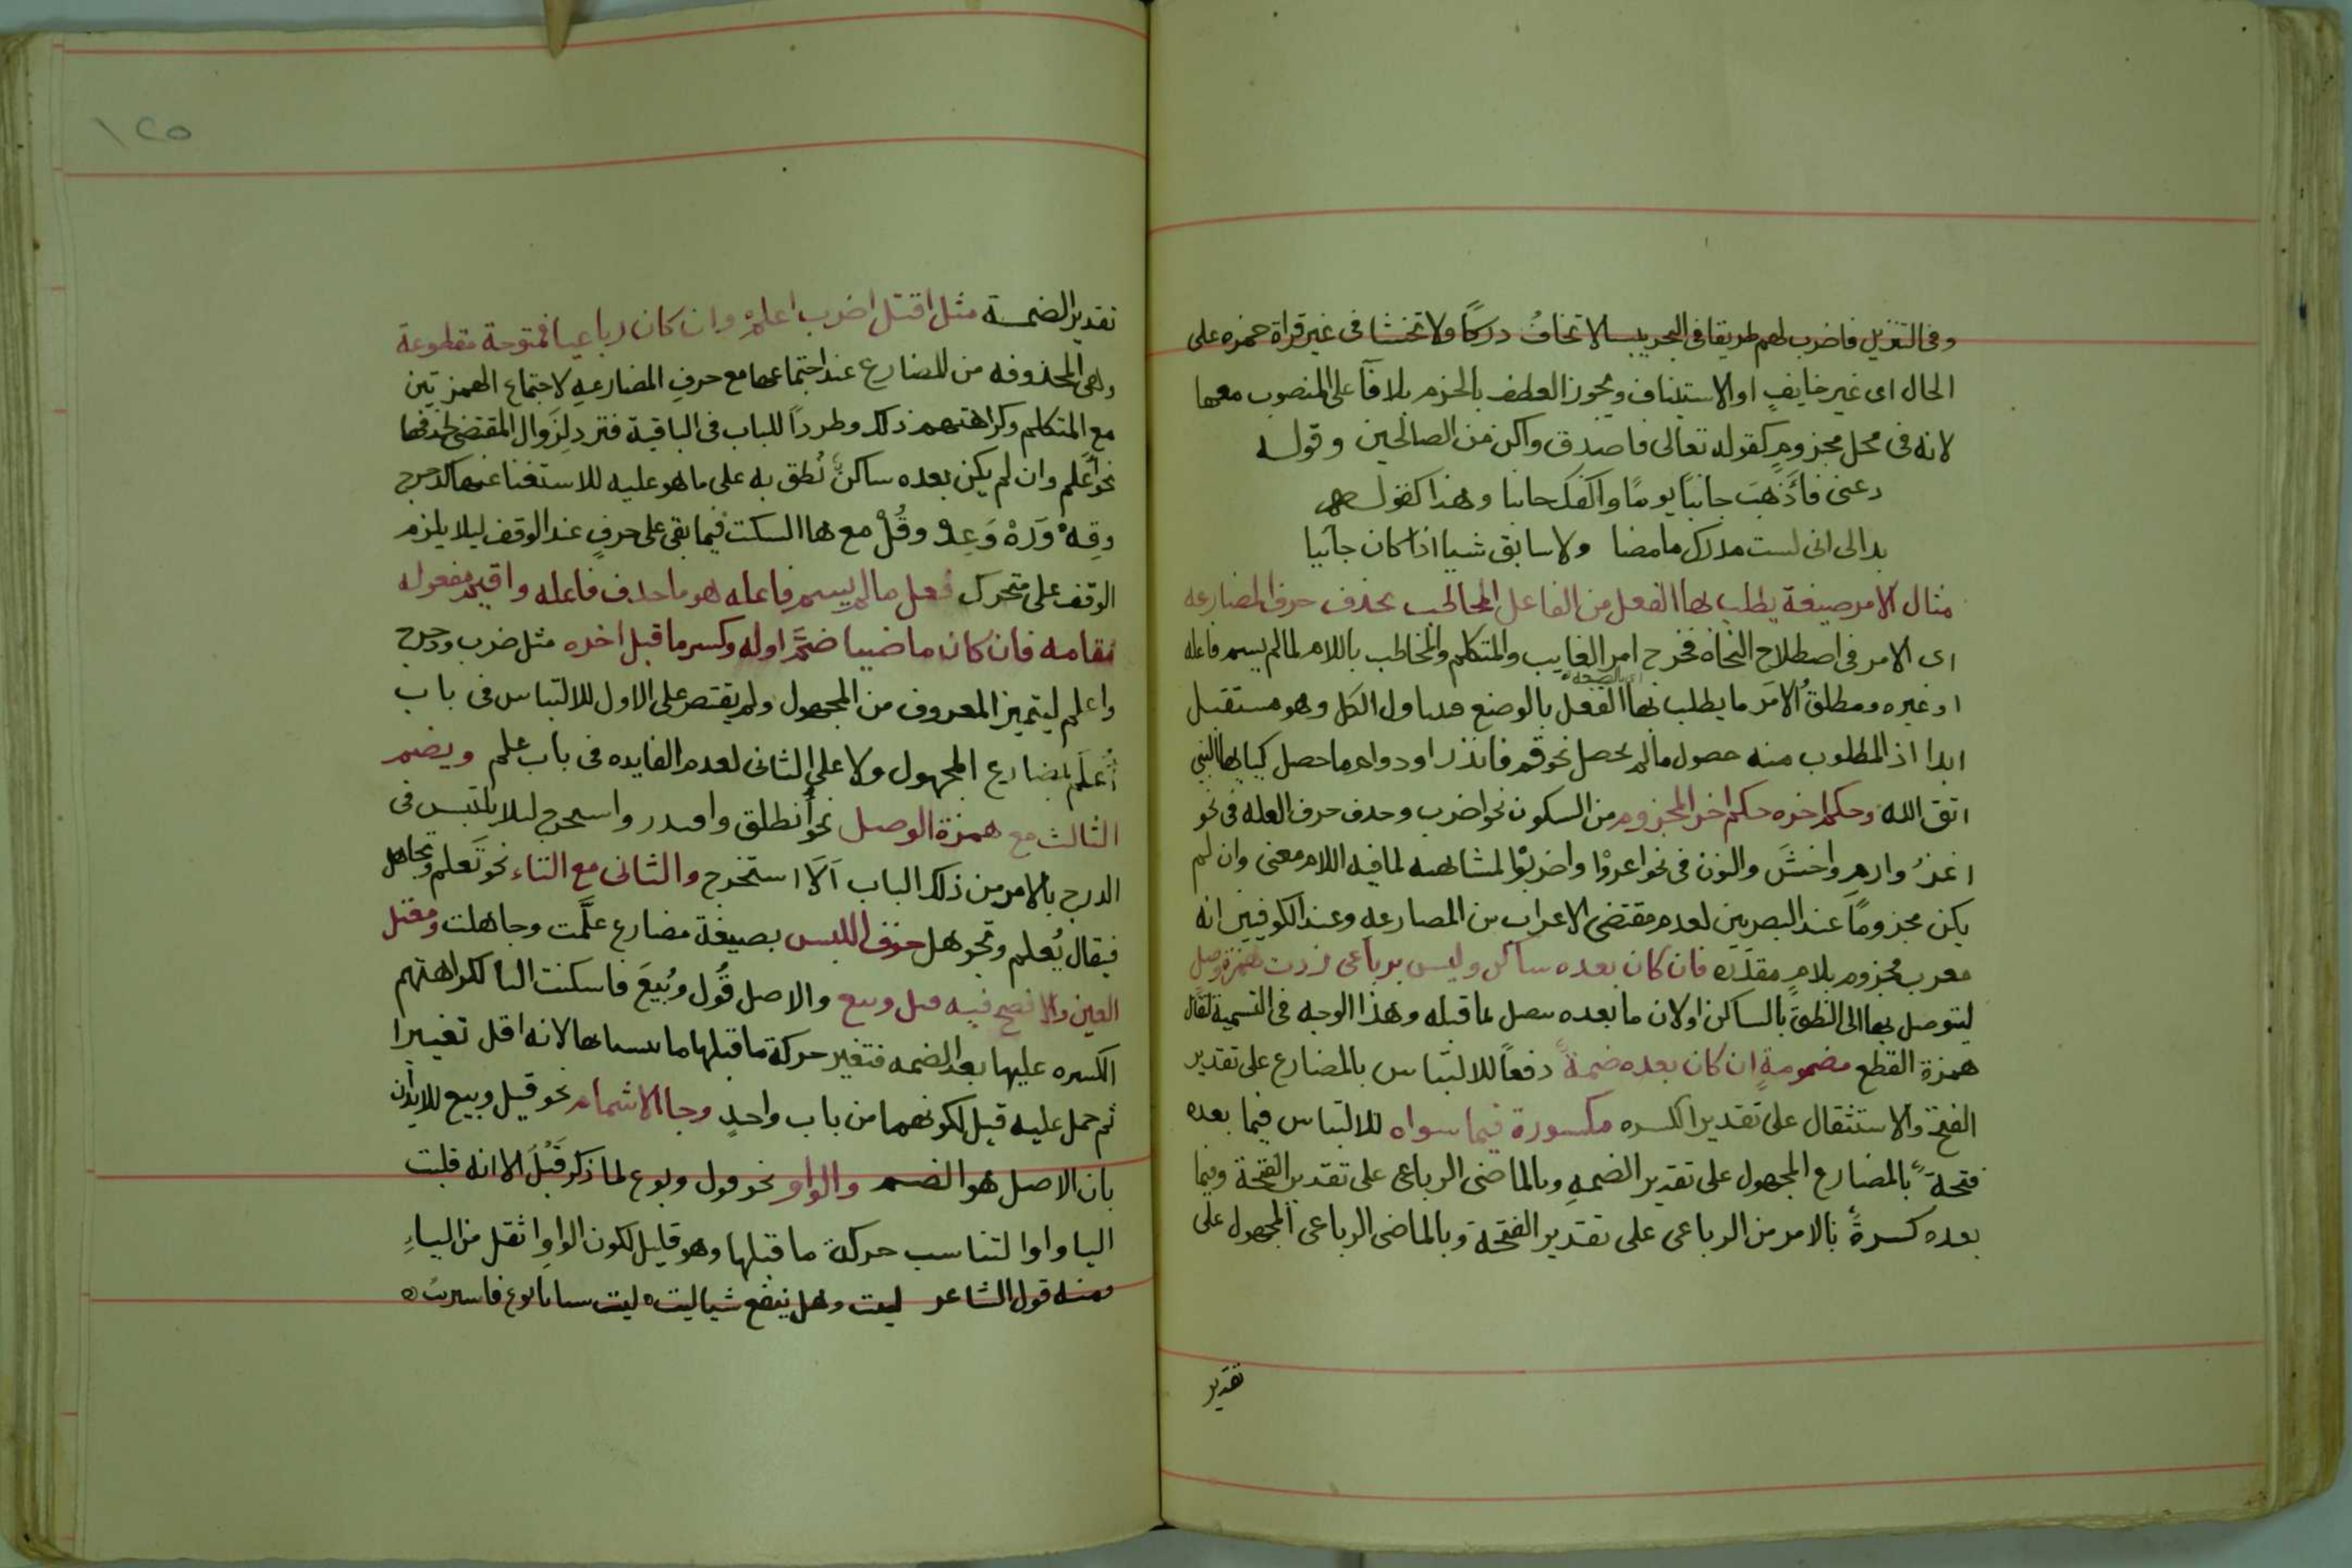 وفى التنزيل فاضرب لهم طريقا فى البحر يبسا لا تخافُ دركًا ولا تخشا فى غير قراة حمزه على
الحال اى غير خايفٍ او الاستيناف ويجوز العطف بالجزم بلا فآ على المنصوب معها
لانه فى محل مجزومٍ كقوله تعالى فاصدق واكن من الصالحين وقوله
دعنى فأذهبَ جانبًا يومًا واكفك جانبا وهذا كقولهم
بدا لى انى لست مدرك ما مضا ولا سابق شيا اذا كان جآئيا
مثال الامر صيغة يطلب بها الفعل من الفاعل المخاطب بحذف حرف المضارعه
اى الامر فى اصطلاح النحاه فخرج امر الغايب والمتكلم والمخاطب باللام لما لم يسم فاعله
او غيره ومطلقُ الامر ما يطلب بها الفعل بالوضع الكل وهو مستقبل
ابدا اذ المطلوب منه حصول ما لم يحصل نحو قم فانذر او دوام ما حصل كيايها النبى
اتق الله وحكم اخره حكم اخر المجزوم من السكون نحو اضرب وحذف حرف العله فى نحو
اغزُ وارمِ واخشَ والنون فى نحو اغزوْا واضربوْا لمشابهته لما فيه اللام معنى وان لم
يكن مجزومًا عند البصريين لعدم مقتضى الاعراب من المضارعه وعند الكوفيين انه
معرب مجزوم بلامٍ مقدَّره فان كان بعده ساكن وليس برباعى زدت همزة وصلٍ
ليتوصل بها الى النطق بالساكن او لان ما بعده يتصل بما قبله وهذا الوجه فى التسمية لقال
همزة القطع مضمومةٍ ان كان بعده ضمةً دفعًا للالتباس بالمضارع على تقدير
الفتحة والاستثقال على تقدير الكسره مكسورة فيما سواه للالتباس فيما بعده
فتحةً بالمضارع المجهول على تقدير الضمهِ وبالماضى الرباعى على تقدير الفتحة وفيما
بعده كسرةً بالامر من الرباعى على تقدير الفتحة وبالماضى الرباعى المجهول على
تقدير
١٢٥
تقدير الضمة مثل اقتل اضرب اعلم وان كان رباعيا فمفتوحة مقطوعة
وهى المحذوفه من المضارع عند اجتماعها مع حرف المضارعهِ لاجتماع الهمزتين
مع المتكلم وكراهتهم ذلك وطردًا للباب فى الباقية فترد لِزَوال المقتضى لحذفها
نحو أعلم وان لم يكن بعده ساكنٌ نُطق به على ما هو عليه للاستغنا عنها كدحرج
وقِهْ وَرَهْ وَعِدْ وقُلْ مع ها السكت فيما بقى على حرفٍ عند الوقف ليلا يلزم
الوقف على متحرك فعل ما لم يسم فاعله هو ما حذف فاعله واقيم مفعوله
مقامه فان كان ماضييا ضمَّ اوله وكسر ما قبل اخره مثل ضرب ودحرج
واعلم ليتميز المعروف من المجهول ولم يقتصر على الاول للالتباس فى باب
أُعلَم بمضارع المجهول ولا على الثانى لعدم الفايده فى باب علم ويضم
الثالث مع همزة الوصل نحو أُنطلق واقتدر واستخرج ليلا يلتبس فى
الدرج بالامر من ذلك الباب اَلَا استخرج والثانى مع التاء نحو تَعلم وتجاهل
فيقال يُعلم وتجوهل خوف اللبس بصيغة مضارع علَّمت وجاهلت ومعتل
العين والافصح فيه قيل وبيع والاصل قُول وبُيعَ فاسكنت اليا لكراهتهم
الكسره عليها بعد الضمه فتغير حركة ما قبلها لانه اقل تغييرا
ثم حمل عليه قيل لكونهما من باب واحدٍ وجا الاشمام نحو قيل وبيع للايذان
بان الاصل هو الضم والواو نحو قول وبوع لما ذكر قَبْلُ الا انه قلبت
اليا واوا لتناسب حركة ما قبلها وهو قليل لكون الواو اثقل من الياءِ
ومنه قول الشاعر ليت وهل ينفع شيا ليت ليت شبابا بوع فاشتريت